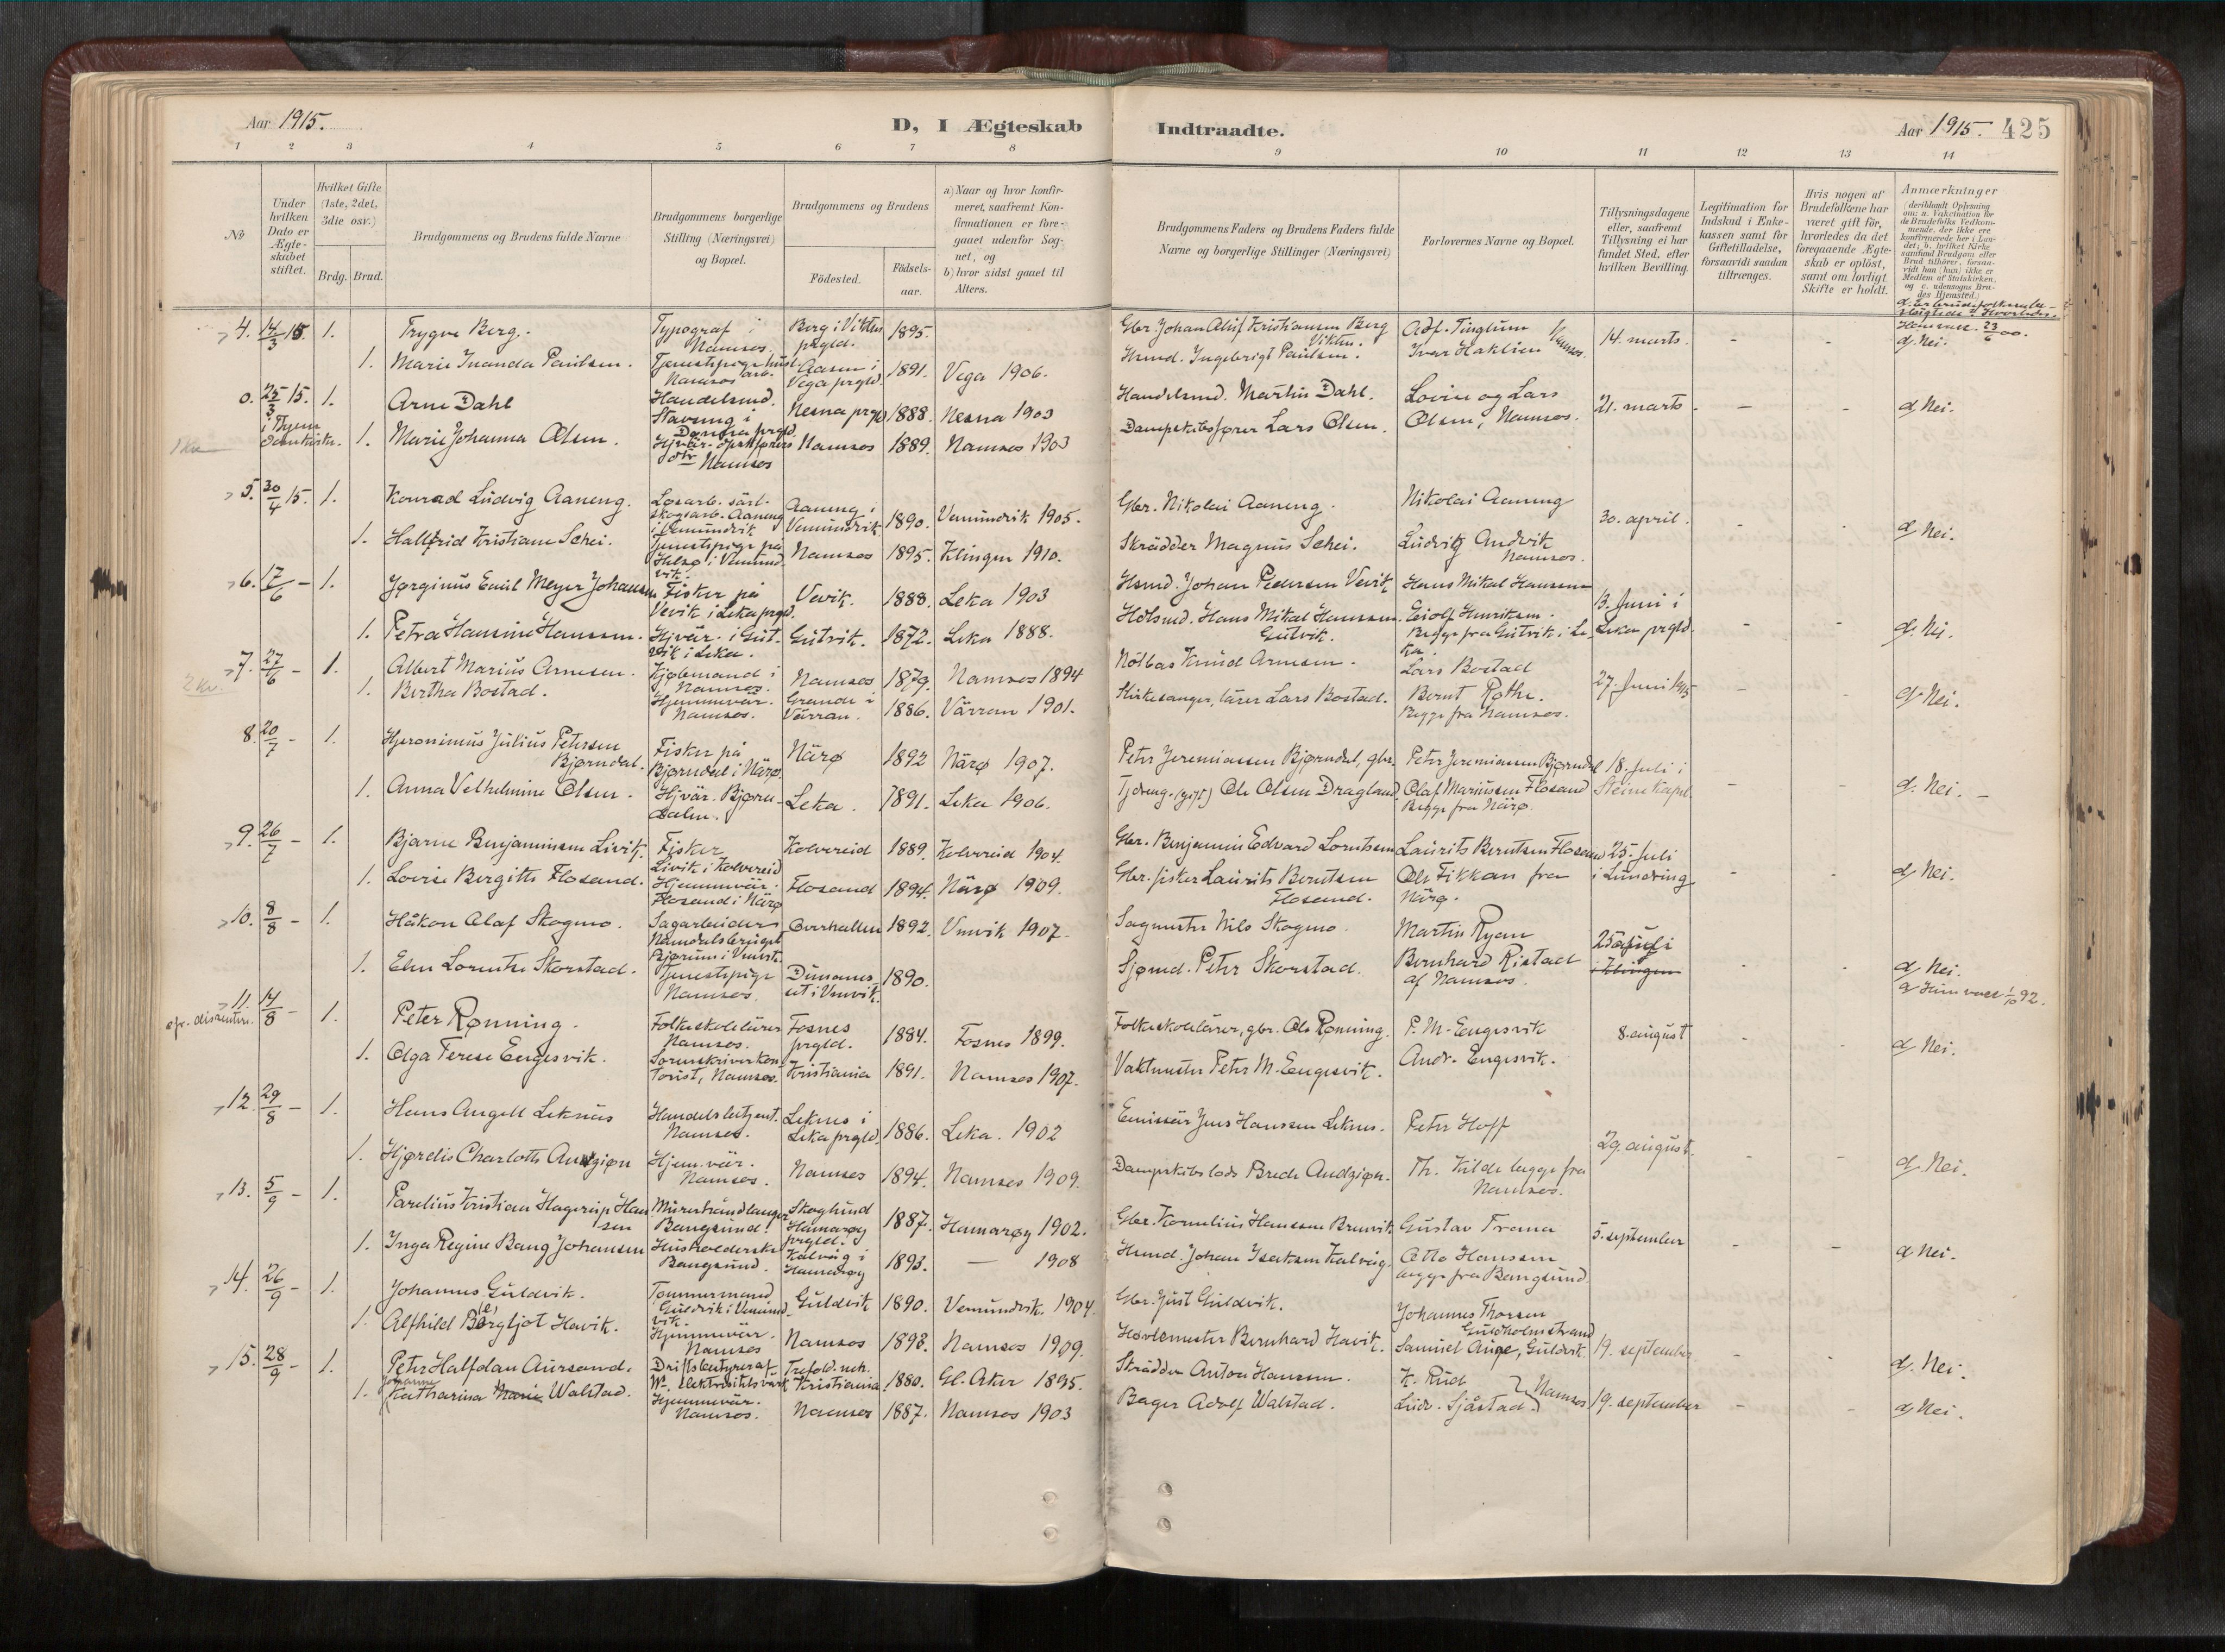 Aar 1915.
D, I Ægteskab
Indtraadte.
Aar 1915. 425
1 2 3 4 5 6 7 8 9 10 11 12 13 14
No
Under hvilken Dato er Ægteskabet stiftet.
Hvilket Gifte (1ste, 2det, 3die osv.)
Brdg. Brud.
Brudgommens og Brudens fulde Navne
Brudgommens borgerlige Stilling (Næringsvei) og Bopæl.
Brudgommens og Brudens
Födested.
Födsels-aar.
a) Naar og hvor konfirmeret, saafremt Konfirmationen er foregaaet udenfor Sognet, og
b) hvor sidst gaaet til Alters.
Brudgommens Faders og Brudens Faders fulde Navne og borgerlige Stillinger (Næringsvei)
Forlovernes Navne og Bopæl.
Tillysningsdagene eller, saafremt Tillysning ei har fundet Sted, efter hvilken Bevilling.
Legitimation for Indskud i Enkekassen samt for Giftetilladelse, forsaavidt saadan tiltrænges.
Hvis nogen af Brudefolkene har været gift før, hvorledes da det foregaaende Ægteskab er oplöst, samt om lovligt Skifte er holdt.
Anmærkninger
4. 14/3 15. 1. Trygve Berg. Typograf i Namsos. Berg i Vikten prgld. 1895. Gbr. Johan Aluf Kristiansen Berg Vikten. Adf. Tinglum 14. marts. - -
1. Marie Inanda Paulsen. Namsos Aasen i Vega prgld. 1891. Vega 1906. Husmd. Ingebrigt Paulsen. Ivar Haklien Namsos. d. Nei.
0. 25/3 15. 1. Arne Dahl Handelsmd. Stavseng i Dønna prgld. Nesna prgld 1888. Nesna 1903 Handelsmd. Martin Dahl. Lovise og Lars Olsen, Namsos. 21. marts - - d. Nei.
1. Marie Johanna Olsen. Namsos Namsos 1889. Namsos 1903 Dampskibsfører Lars Olsen.
5. 30/4 15. 1. Konrad Ludvig Aaneng. Aaneng i Vemundvik 1890. Vemundvik 1905. Gbr. Nikolai Aaneng. Nikolai Aaneng 30. april. - - d. Nei.
1. Halfrid Kristiane Schei. Tjenestepige på Namsos 1895. Klingen 1910. Skrädder Magnus Schei. Ludvig Andvik Namsos.
6. 17/6 - 1. Jørginus Emil Meyer Johansen Fisker på Vevik i Leka prgld. Vevik. 1888. Leka 1903 Hsmd. Johan Pedersen Vevik Hans Mikal Hanssen 13. Juni i Leka prgld. - - d. Nei.
1. Petra Hansine Hanssen. Hjvär. i Gutvik i Leka. Gutvik. 1872. Leka 1888. Hans Mikal Hanssen Gutvik. Eiolf Henriksen. Begge fra Gutvik i Leka.
7. 27/6 - 1. Albert Marius Arnesen. Kjøbmand i Namsos. Namsos 1879. Namsos 1894 Knud Arnesen. Lars Bostad 27. Juni 1915 - - d. Nei.
1. Bertha Bostad. Hjemmevär. Namsos. Grande i Verran. 1886. Värran 1901. Kirkesanger, lärer Lars Bostad. Bernt Rothe. Begge fra Namsos.
8. 20/7 - 1. Hjeronimus Julius Petersen Bjørndal. Fisker på Bjørndal i Närø. Närø 1892 Närø 1907. Peter Jeremiassen Bjørndal, gbr. Peter Jeremiassen Bjørndal 18. Juli i Steine Kapel. - - d. Nei. -
1. Anna Velhelmine Olsen. Hjvär. Bjørndalen. Leka. 1891. Leka 1906. Ole Olsen Dragland, Olaf Mariussen Flosand Begge fra Närø.
9. 26/7 - 1. Bjarne Benjaminsen Livik. Fisker Livik i Kolvereid Kolvereid 1889. Kolvereid 1904. Gbr. Benjamin Edvard Lorntsen Laurits Berntsen Flosand 25. Juli i Lundring - - d. Nei.
1. Lovise Bergitte Flosand. Hjemmevär. Flosand i Närø Flosand 1894. Närø 1909. Gbr. fisker Laurits Berntsen Flosand. Ole Fikkan fra Närø.
10. 8/8 - 1. Håkon Olaf Skogmo. Sagarbeider Namdalsbruget Overhallen 1892. Vmvik 1907. Sagmester Nils Skogmo. Martin Ryan 25. juli i Klingen - - d. Nei.
1. Elen Lorentse Skorstad. Tjenestepige Namsos. 1890. Sjømd. Peter Skorstad. Bernhard Ristad af Namsos.
11. 14/8 - 1. Peter Rønning. Folkeskolelärer Namsos. Fosnes prgld. 1884. Fosnes 1899. Folkeskolelärer, gbr. Ole Rønning. P. M. Engesvik 8. august - - d. Nei.
1. Olga Terese Engesvik. Sorenskriverkontorist, Namsos. Kristiania 1891. Namsos 1907. Vaktmester Peter M. Engesvik. Andr. Engesvik.
12. 29/8 - 1. Hans Angell Leknäs Handelsbetjent. Namsos. Leknes i Leka prgld. 1886. Leka. 1902 Emissär Jens Hanssen Leknes. Peter Hoff 29. august. - - d. Nei.
1. Hjørdis Charlotte Andgjøn Hjem.vär. Namsos. Namsos 1894. Namsos 1909. Dampskibslods Brede Andgjøn. Th. Kilde begge fra Namsos.
13. 5/9 - 1. Parelius Kristian Hagerup Hanssen Murerhåndlanger Bangsund. Skoghund Hamarøy prgld. 1887. Hamarøy 1902. Gbr. Kornelius Hanssen Gustav Trana 5. september - - d. Nei.
1. Inga Regine Bang Johansen Husholderske Bangsund. Kalvåg i Hamarøy 1893. - 1908 Hsmd. Johan Isaksen Kalvåg. Otto Hanssen begge fra Bangsund.
14. 26/9 - 1. Johannes Guldvik. Tømmermand Guldvik i Vemundvik. Guldvik 1890. Vemundvik 1904. Gbr. Just Guldvik. Johannes Thorsen 19. september - - d. Nei.
1. Alfhild Bergljot Havik. Hjemmevär. Namsos Namsos 1893. Namsos 1909. Høvlemester Bernhard Havik. Samuel Aune, Guldvik.
15. 28/9 - 1. Peter Halfdan Aursand. Driftsbestyrer af Kristiania 1880. Gl. Aker 1895. Skrädder Anton Hanssen. K. Rud 19. september - - d. Nei.
1. Johanne Katharina Marie Walstad. Hjemmevär. Namsos. Namsos 1887. Namsos 1903 Bager Adolf Walstad. Ludv. Sjåstad. Namsos.